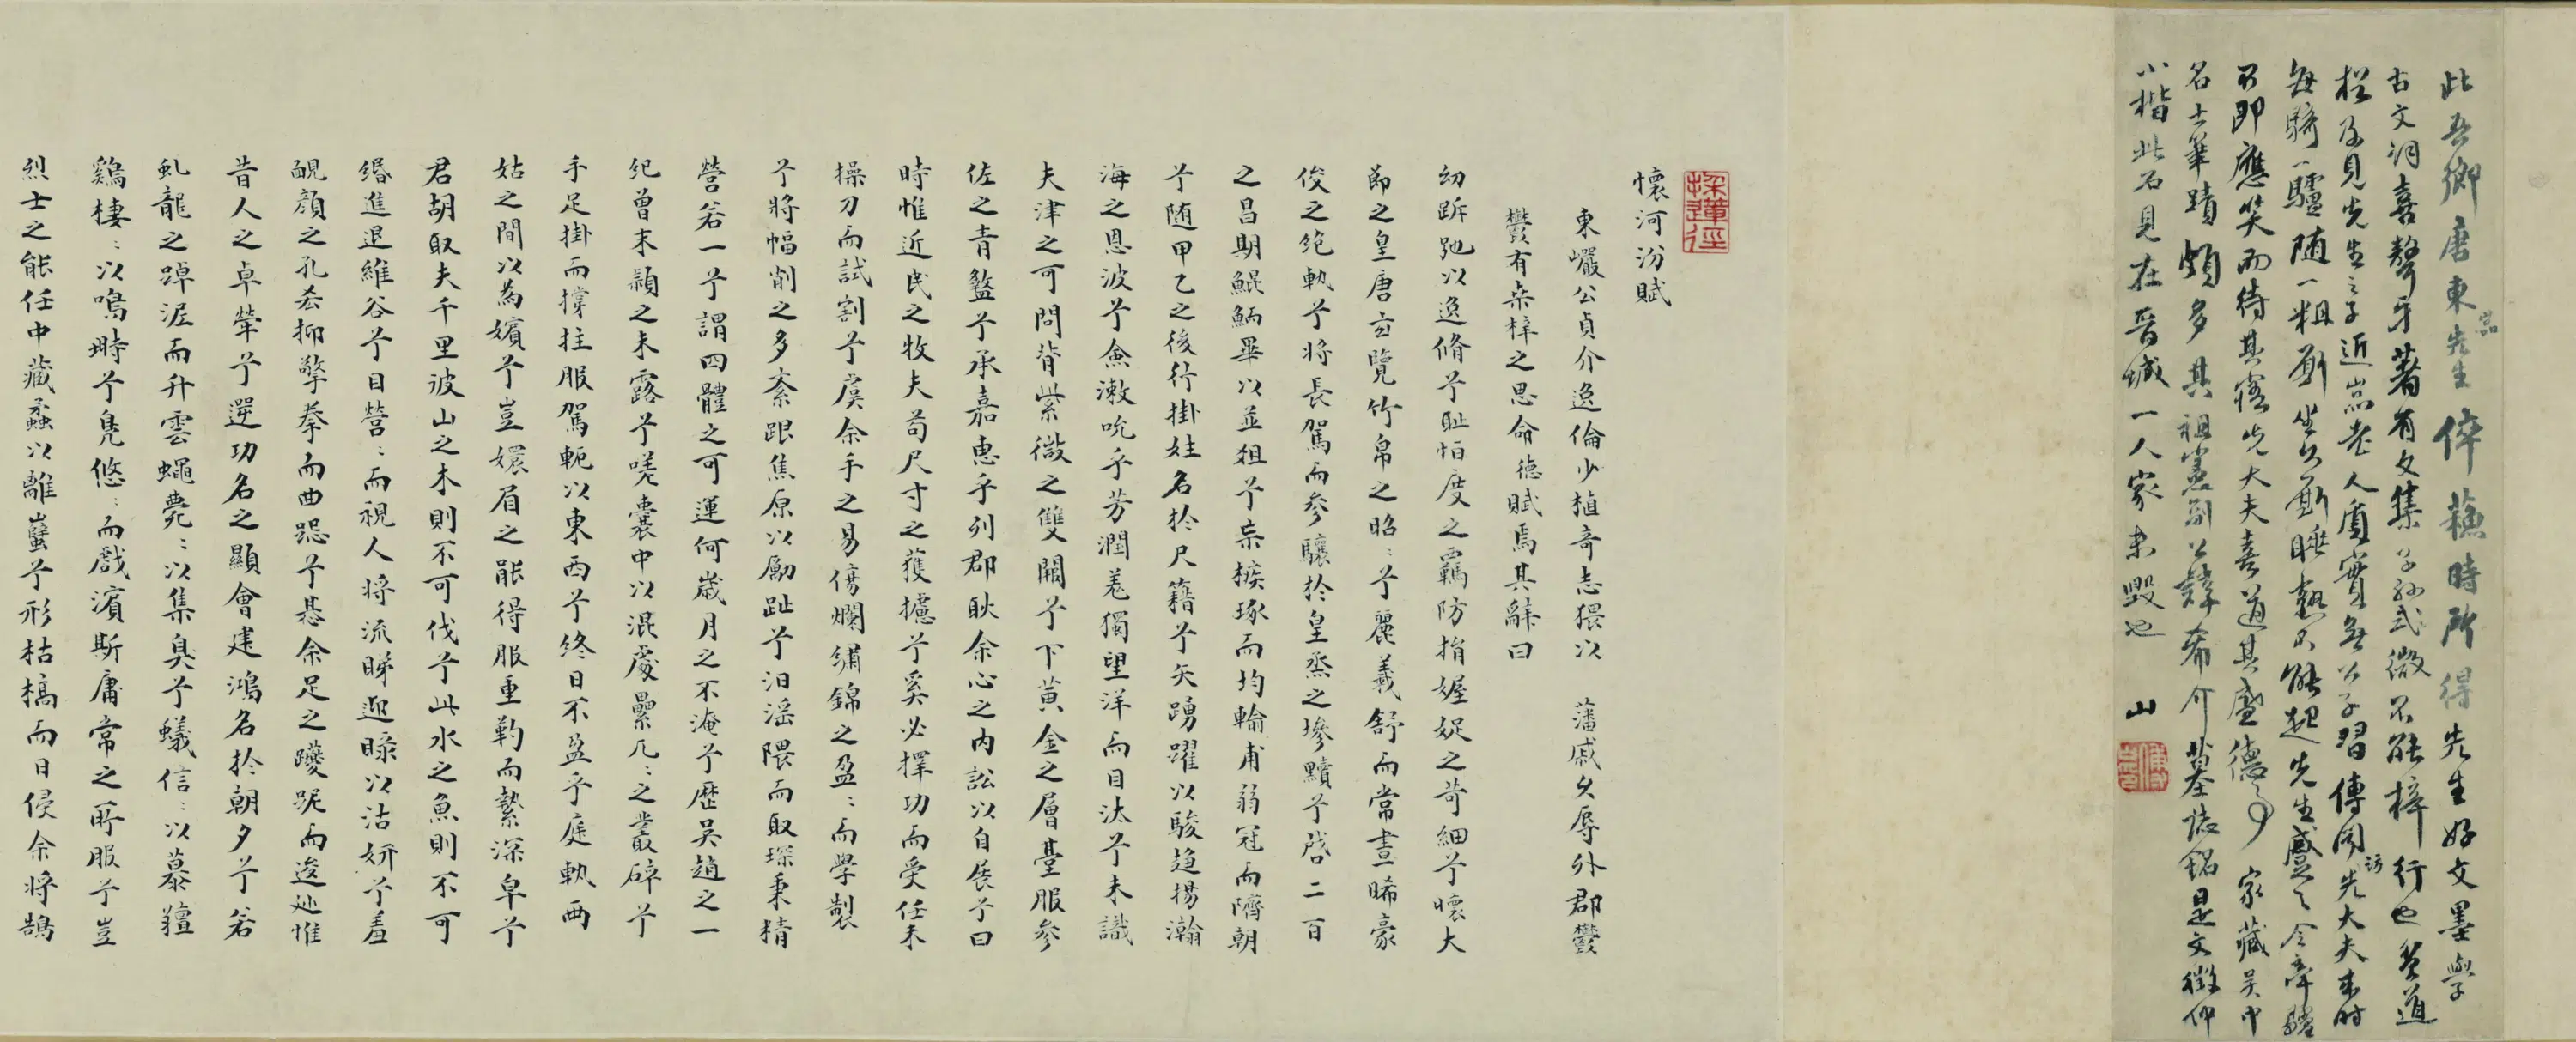 此吾鄉唐東嵓先生倅蘓時所得先生好文墨學
古文詞喜聱牙著有文集子孫式微不能梓行也貧道
猶及見先生之子近嵓老人
每騎一驢随一粗厮坐
不即應笑而待其寤先大夫喜道其盛德事家藏吴中
名士筆蹟頗多其祖憲副公
墓誌銘是文徵仲
小楷此石見在晉城一人家未毁也 山
採蓮徑
懷河汾賦
東巖公貞介逸倫少植奇志猥以 藩戚久辱外郡鬱
鬱有桒梓之思命德賦焉其辭曰
幼跅弛以逸脩兮恥怕度之羈防搰媉娖之苛細兮懷大
節之皇唐玄覽竹帛之昭〻兮麗羲舒而常晝晞豪
俊之絶軌兮將長駕而參驤於皇烝之埁黷兮啓二百
之昌期鯤鮞畢以並俎兮杗㮨琢而均輪甫弱冠而隮朝
兮随甲乙之後行掛姓名於尺籍兮矢踴躍以駿趍揚瀚
海之恩波兮僉漱吮乎芳潤羌獨望洋而目汰兮未識
夫津之可問背紫微之雙闕兮下黄金之層臺服參
佐之青盭兮承嘉惠乎列郡耿余心之内訟以自展兮曰
時惟近民之牧夫苟尺寸之獲攄兮奚必擇功而受任未
操刀而試割兮虞余手之易傷爛繡錦之盈〻而學製
兮將幅削之多紊跟焦原以勵趾兮汩滛隈而取琛秉精
營若一兮謂四體之可運何歲月之不淹兮歷吴趙之一
紀曽末穎之未露兮嗟囊中以混處纍兀〻之叢碎兮
手足掛而撐拄服駕軛以東西兮終日不盈乎庭軌两
姑之間以為嬪兮豈嬛眉之能得服重靮而縶深皁兮
君胡取夫千里彼山之木則不可伐兮此水之魚則不可
緡進退維谷兮目營〻而視人将流睇迎睩以沽妍兮羞
靦顔之孔厹抑擎拳而曲跽兮惎余足之躨跜而逡廵惟
昔人之卓犖兮選功名之顯會建鴻名於朝夕兮若
虬龍之踔泥而升雲蠅薨〻以集臭兮蟻信〻以慕羶
鷄棲〻以鳴塒兮鳧悠〻而戲濱斯庸常之所服兮豈
烈士之能任中藏蟊以離蠥兮形枯槁而日侵余将鵠